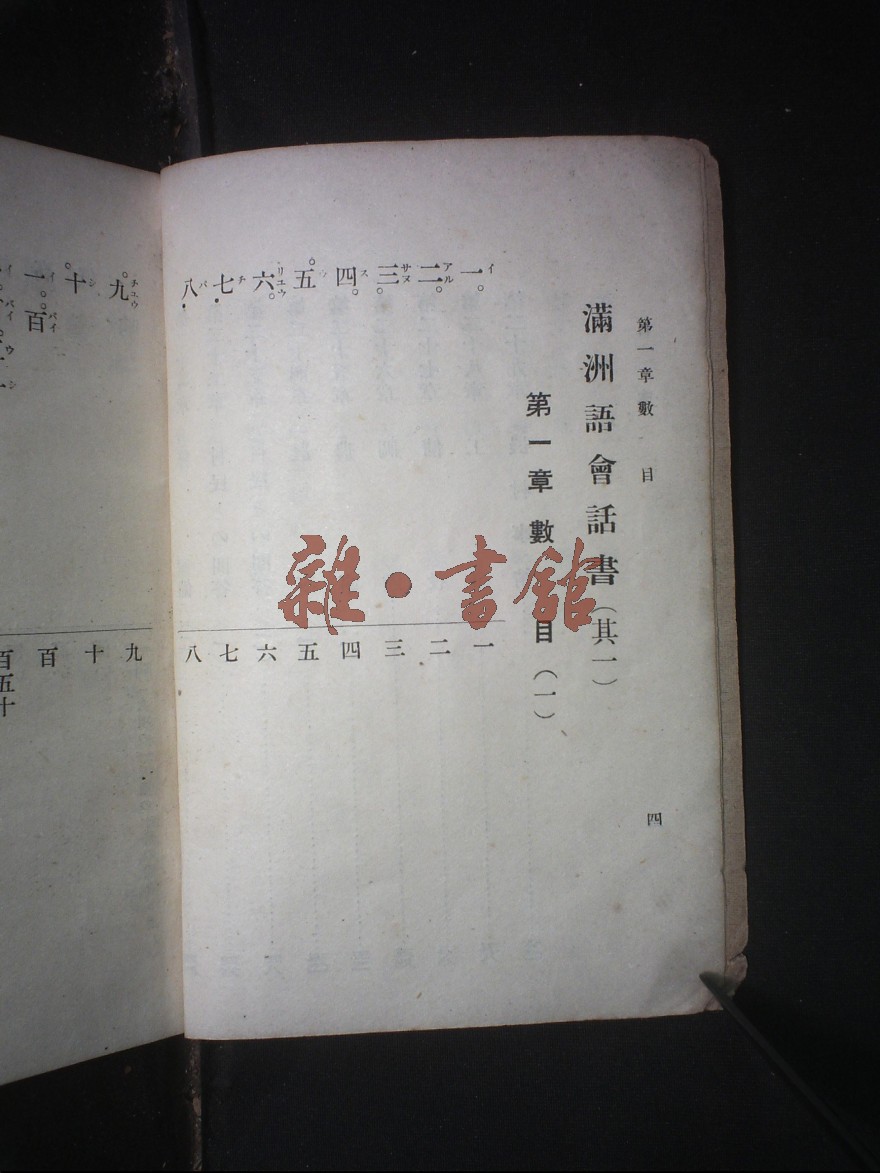 第一章 數 目
四
滿洲語會話書（其一）
第一章 數 目（一）
一 イ 一
二 アル 二
三 サヌ 三
四 ス 四
五 ウ 五
六 リユウ 六
七 チ 七
八 パ 八
九 チユウ 九
十 シ 十
一百 イ パイ 百
百五十
雜·書館